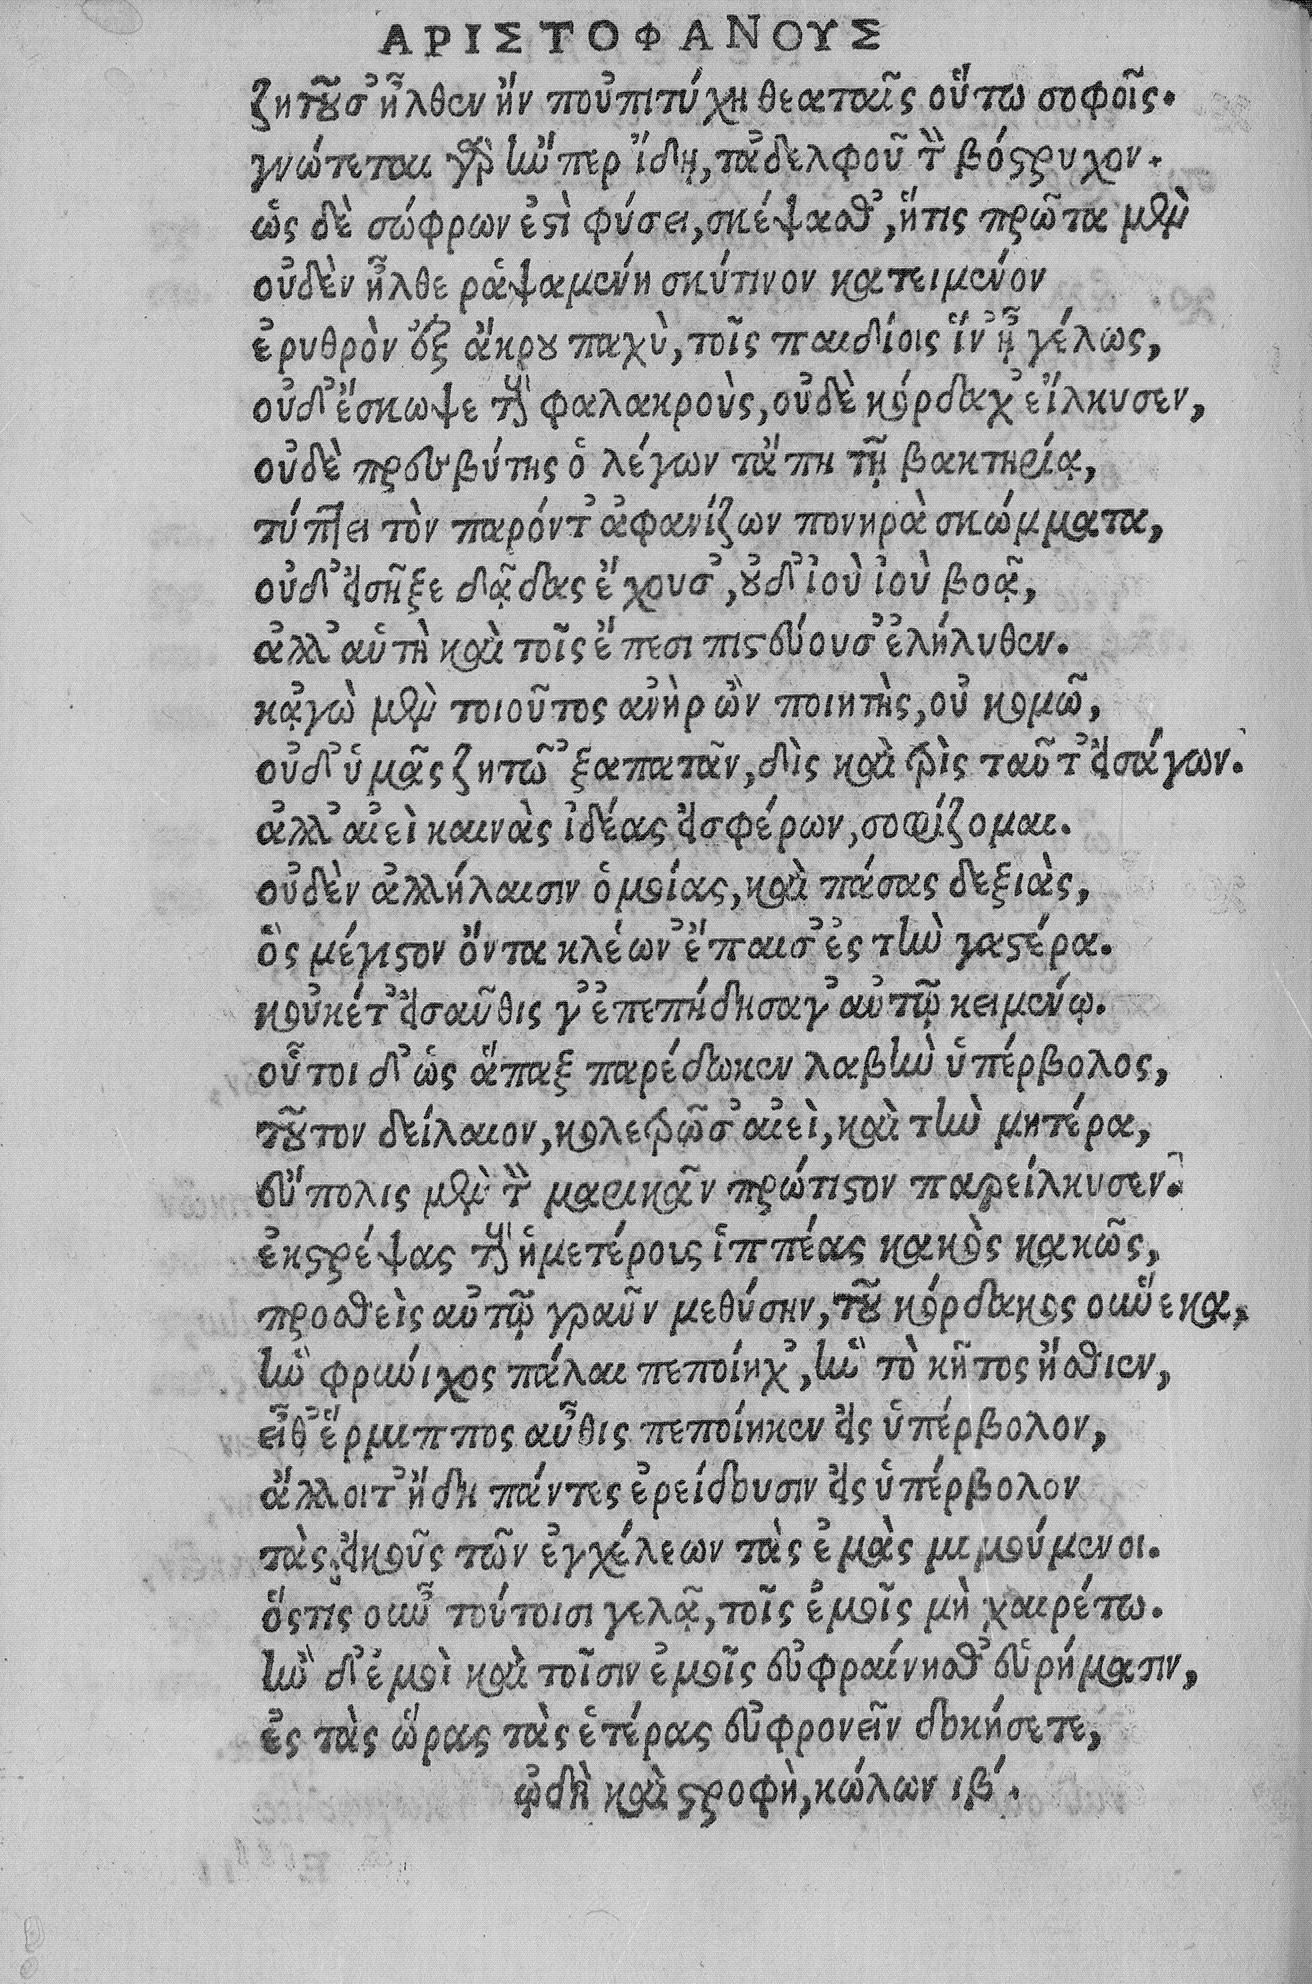 ΑΡΙΣΤΟΦΑΝΟΥΣ
ζητοῦσ' ἦλθεν ἤν που 'πιτύχῃ θεαταῖς οὕτω σοφοῖς.
γνώτεται γὰρ ἤνπερ ἴδῃ, τἀδελφοῦ τὸν βόστρυχον.
ὡς δὲ σώφρων ἐστὶ φύσει, σκέψασθ', ἥτις πρῶτα μὲν
οὐδὲν ἦλθε ῥαψαμένη σκύτινον κατειμένον
ἐρυθρὸν ἐξ ἄκρου παχὺ, τοῖς παιδίοις ἵν' ᾖ γέλως,
οὐδ' ἔσκωψε τοὺς φαλακροὺς, οὐδὲ κόρδαχ' εἵλκυσεν,
οὐδὲ πρεσβύτης ὁ λέγων τἄπη τῇ βακτηρίᾳ,
τύπτει τὸν παρόντ' ἀφανίζων πονηρὰ σκώμματα,
οὐδ' εἰσῇξε δᾷδας ἔχουσ', οὐδ' ἰοὺ ἰοὺ βοᾷ,
ἀλλ' αὑτὴ καὶ τοῖς ἔπεσι πιστεύουσ' ἐλήλυθεν.
κᾀγὼ μὲν τοιοῦτος ἀνὴρ ὢν ποιητὴς, οὐ κομῶ,
οὐδ' ὑμᾶς ζητῶ 'ξαπατᾶν, δὶς καὶ τρὶς ταὔτ' εἰσάγων.
ἀλλ' αἰεὶ καινὰς ἰδέας εἰσφέρων, σοφίζομαι.
οὐδὲν ἀλλήλαισιν ὁμοίας, καὶ πάσας δεξιὰς,
ὃς μέγιστον ὄντα κλέων' ἔπαισ' ἐς τὴν γαστέρα.
κοὐκέτ' εἰσαῦθις γ' ἐπεπήδησαγ' αὐτῷ κειμένῳ.
οὗτοι δ' ὡς ἅπαξ παρέδωκεν λαβὴν ὑπέρβολος,
τοῦτον δείλαιον, κολετρῶσ' αἰεὶ, καὶ τὴν μητέρα,
εὔπολις μὲν τὸν μαρικᾶν πρώτιστον παρείλκυσεν.
ἐκστρέψας τοὺς ἡμετέρους ἱππέας κακὸς κακῶς,
προσθεὶς αὐτῷ γραῦν μεθύσην, τοῦ κόρδακος οὕνεκα,
ἣν φρύνιχος πάλαι πεποίηχ', ἣν τὸ κῆτος ἤσθιεν,
εἶθ' ἕρμιππος αὖθις πεποίηκεν εἰς ὑπέρβολον,
ἄλλοιτ' ἤδη πάντες ἐρείδουσιν εἰς ὑπέρβολον
τὰς εἰκοῦς τῶν ἐγχέλεων τὰς ἐμὰς μιμούμενοι.
ὅστις οὖν τούτοισι γελᾷ, τοῖς ἐμοῖς μὴ χαιρέτω.
ἢν δ' ἐμοὶ καὶ τοῖσιν ἐμοῖς εὐφραίνησθ' εὑρήμασιν,
ἐς τὰς ὥρας τὰς ἑτέρας εὐφρονεῖν δοκήσετε,
ᾠδὴ καὶ στροφὴ, κώλων ιβ'.